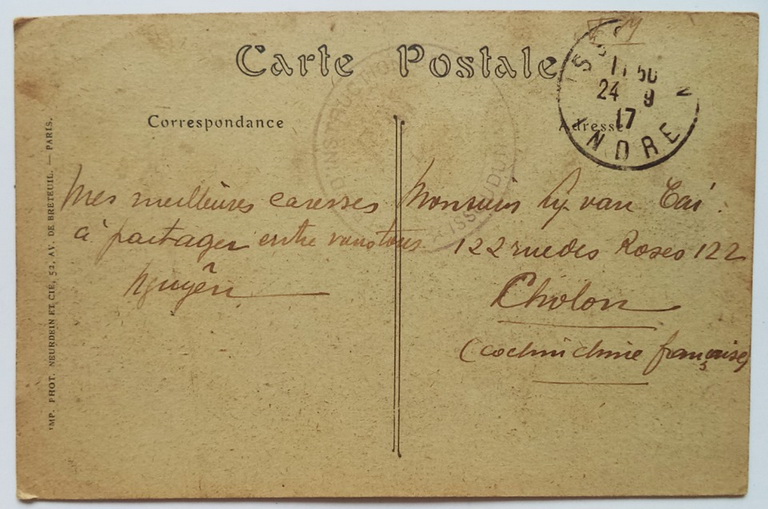 Carte Postale
Correspondance
Adresse
ISS
11 50
24 9
17
INDRE
Mes meilleures caresses
à partager entre vous tous.
Nguyên
Monsieur Ly van Tai.
122 rue des Roses 122
Cholon
(Cochinchine française)
IMP. PHOT. NEURDEIN ET CIE, 52, AV. DE BRETEUIL. — PARIS.